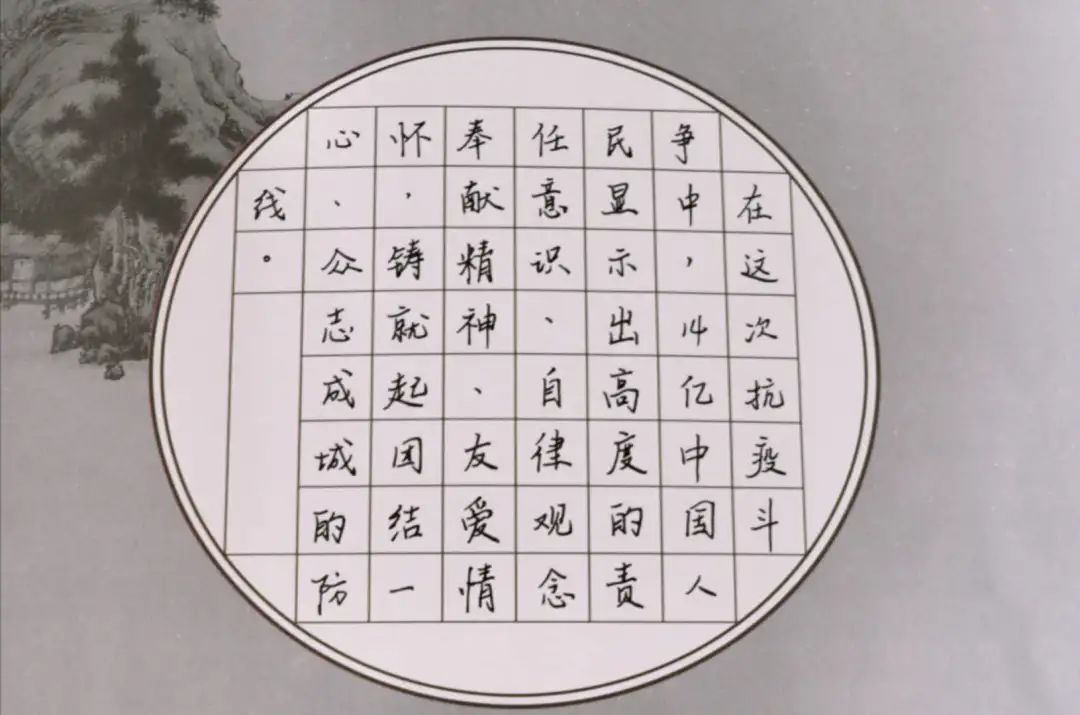 在这次抗疫斗
争中，14亿中国人
民显示出高度的责
任意识、自律观念
奉献精神、友爱情
怀，铸就起团结一
心、众志成城的防
线。